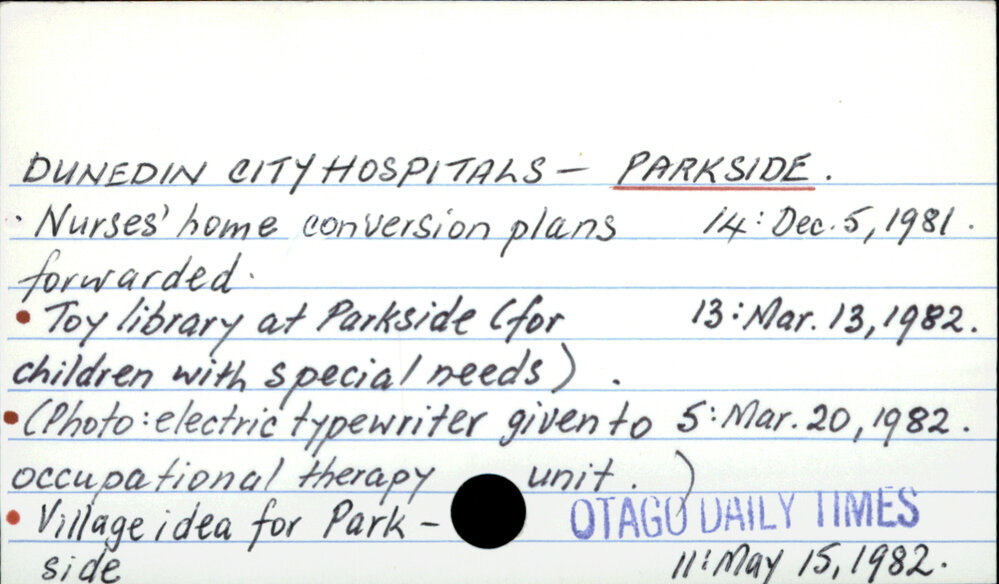 DUNEDIN CITY HOSPITALS - PARKSIDE.
Nurses' home conversion plans 14: Dec. 5, 1981.
forwarded.
• Toy library at Parkside (for 13: Mar. 13, 1982.
children with special needs).
• (Photo: electric typewriter given to 5: Mar. 20, 1982.
occupational therapy unit.)
• Village idea for Park- OTAGO DAILY TIMES
side 11: May 15, 1982.